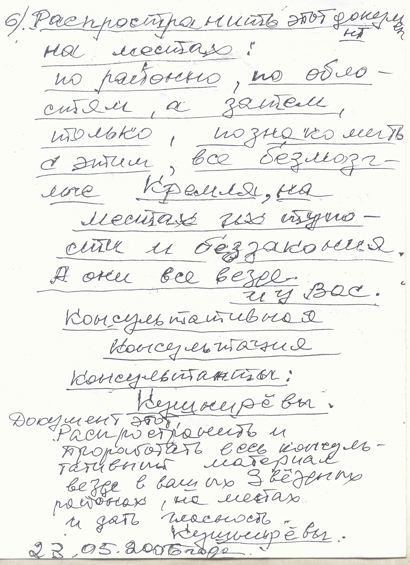 6). Распространить этот докумен
нт
на местах:
по районно, по обла-
стям, а затем,
только, познакомить
с этим, все безмозг-
лые Кремля, на
местах их тупо-
сти и беззакония.
А они все везде
и у Вас.
Консультативная
Консультация
Консультанты:
Кушнирёвы.
Документ этот
Распространить и
проработать весь консуль-
тативний материал
везде в ваших Звёздных
районах, на местах
и дать гласность.
Кушнирёвы.
23.05.2006 года.